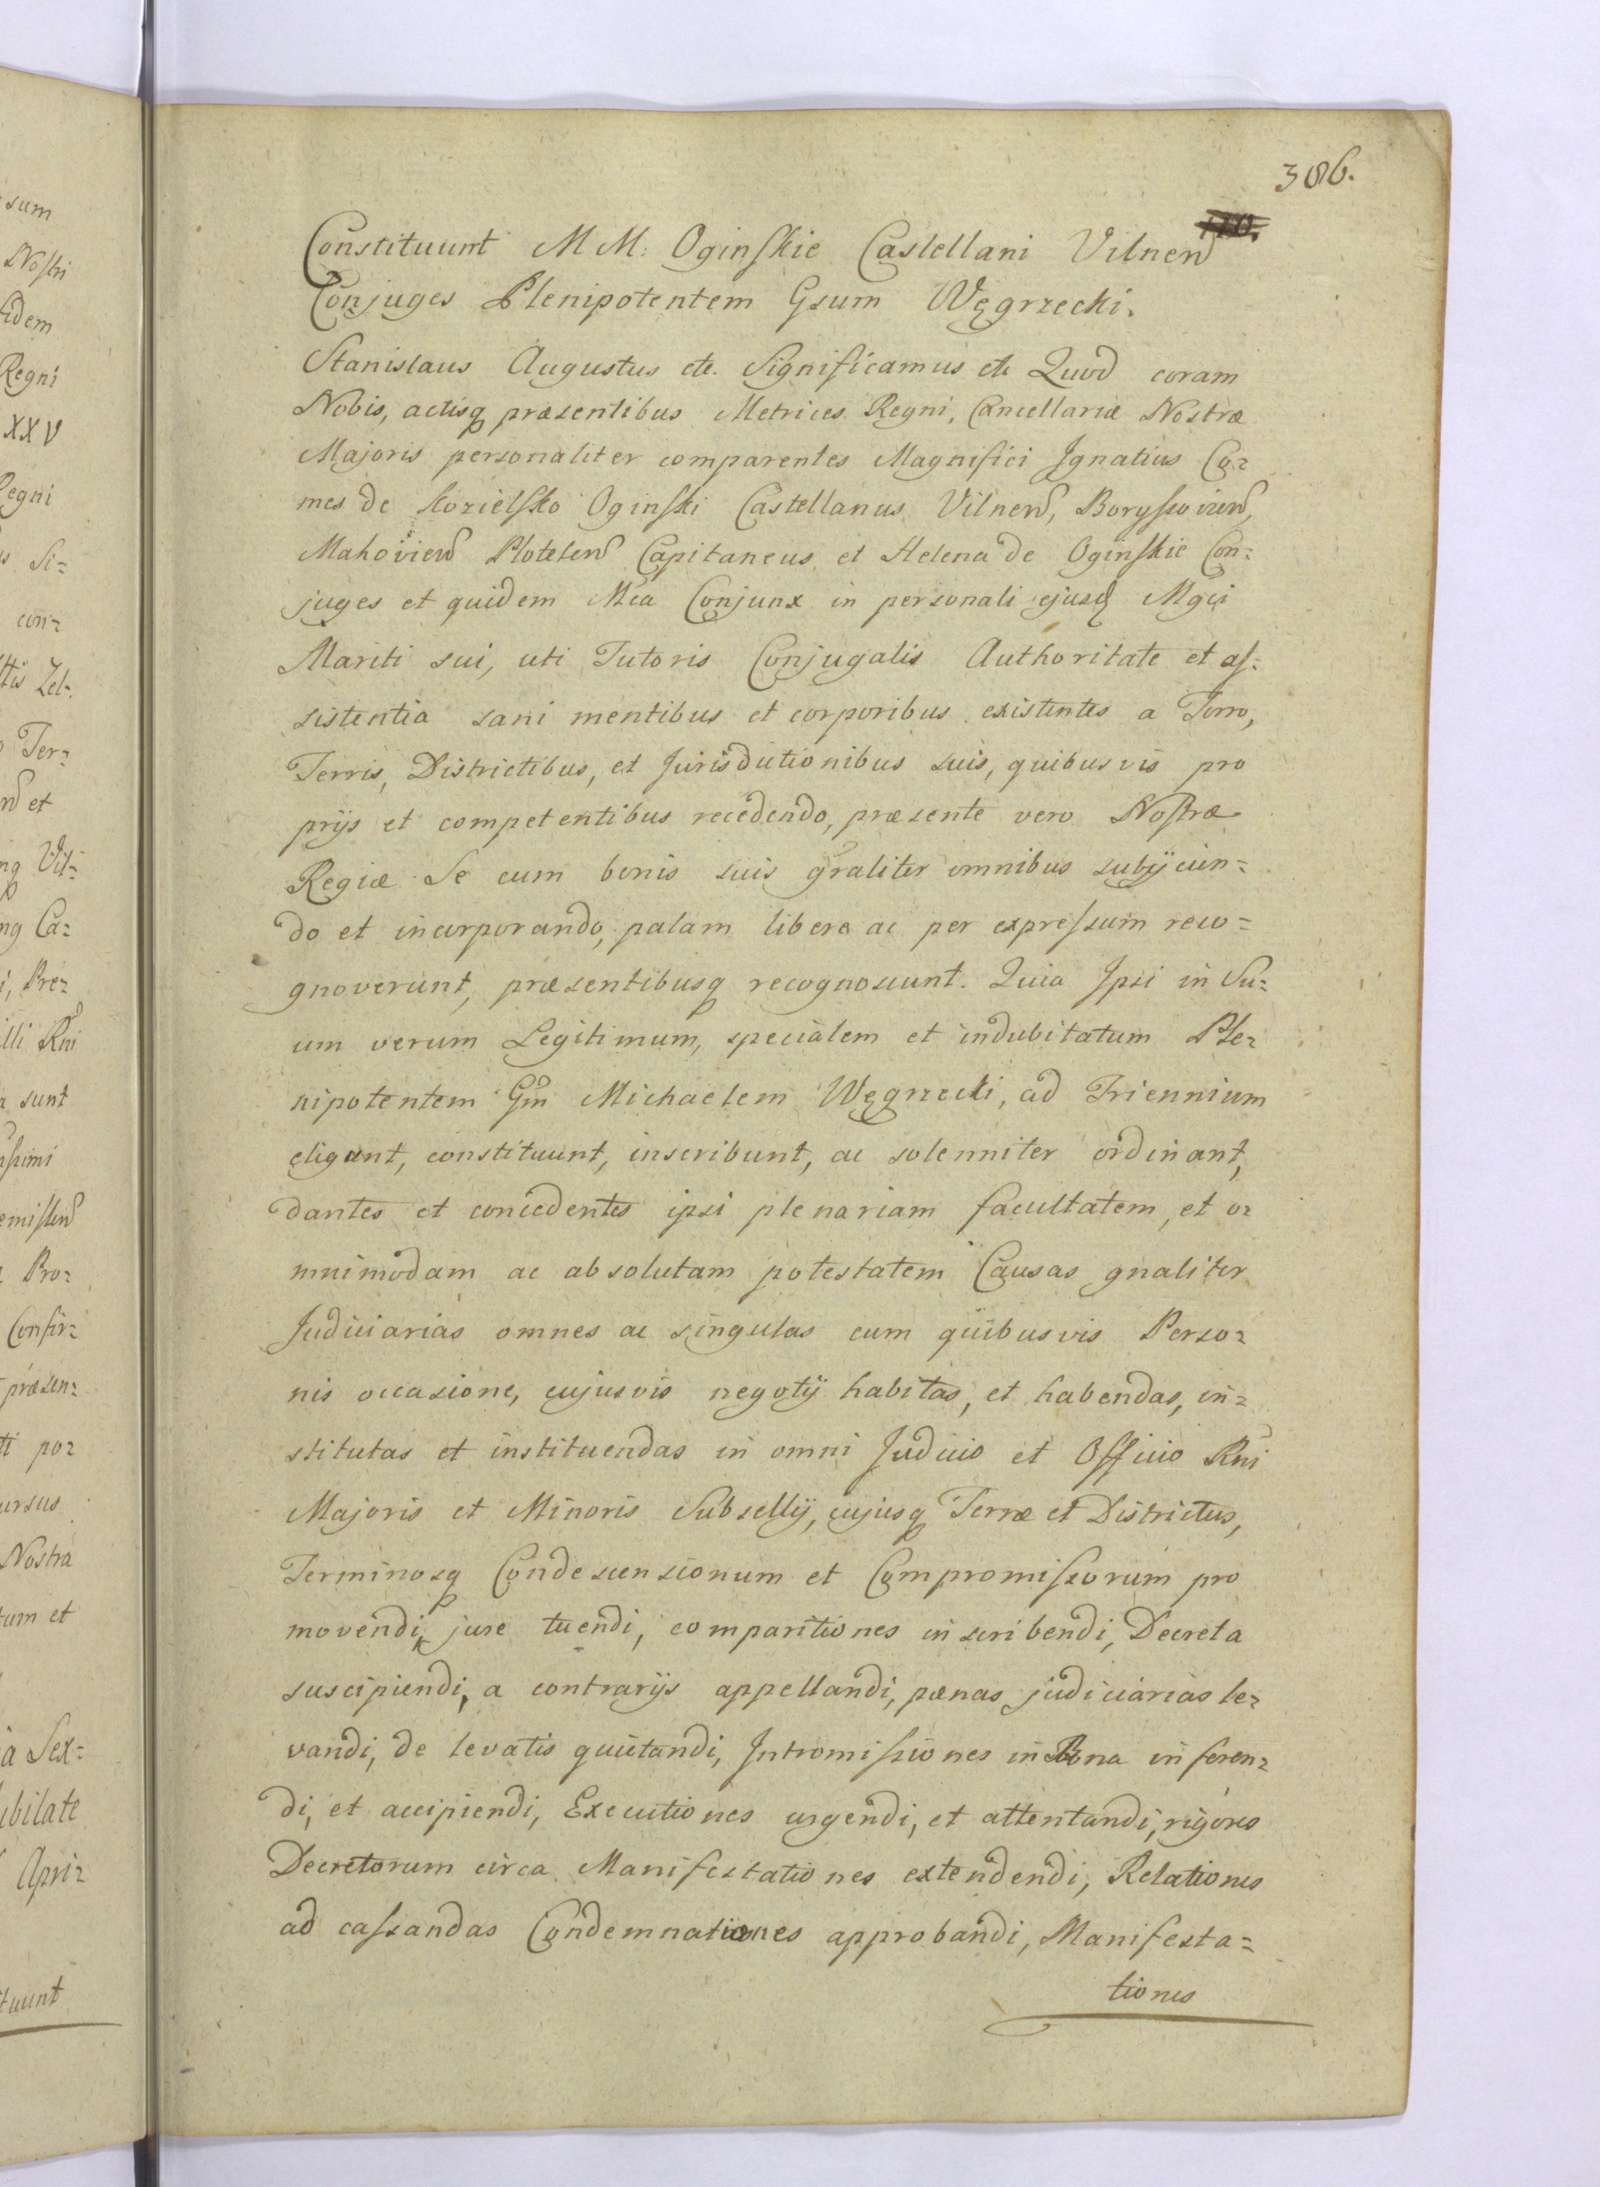 386.
Constituunt MM: Oginskie Castellani Vilnen
Conjuges Plenipotentem Gsum Węgrzecki.
Stanislaus Augustus etc. Significamus etc Quod coram
Nobis, actisq præsentibus Metrices Regni, Cancellariæ Nostræ
Majoris personaliter comparentes Magnifici Ignatius Co=
mes de Kozielsko Oginski Castellanus Vilnen, Borysovien,
Mahovien Plotelen Capitaneus et Helena de Oginskie Con=
juges et quidem Mca Conjunx in personali ejusd Mgci
Mariti sui, uti Tutoris Conjugalis Authoritate et as=
sistentia sani mentibus et corporibus existentes a Terro,
Terris, Districtibus, et Jurisdictionibus suis, quibusvis pro
prijs et competentibus recedendo, præsente vero Nostræ
Regiæ Se cum bonis suis gnaliter omnibus subijcien=
do et incorporando, palam libere ac per expressum reco=
gnoverunt, præsentibusq recognoscunt. Quia Ipsi in Su=
um verum Legitimum, specialem et indubitatum Ple=
nipotentem Gm Michaelem Węgrzecki, ad Triennium
eligunt, constituunt, inscribunt, ac solenniter ordinant,
dantes et concedentes ipsi plenariam facultatem, et o=
mnimodam ac absolutam potestatem Causas gnaliter
Judiciarias omnes ac singulas cum quibusvis Perso=
nis occasione, cujusvis negotij habitas, et habendas, in=
stitutas et instituendas in omni Judicio et Officio Rni
Majoris et Minoris Subsellij, cujusq Terræ et Districtus,
Terminosq Condescensionum et Compromissorum pro
movendi, jure tuendi, comparitiones inscribendi, Decreta
suscipiendi, a contrarijs appellandi, pœnas judiciarias le=
vandi, de levatis quietandi, Intromissiones in Bona inferen=
di, et accipiendi, Executiones urgendi, et attentandi, rigores
Decretorum circa Manifestationes extendendi, Relationes
ad cassandas Condemnationes approbandi, Manifesta=
tiones
sum
Nostri
Eidem
Regni
XXV
Regni
Si=
con=
Ter=
et
Vil=
Ca=
Pre=
Rni
sunt
Pro=
Confir=
præsen=
po=
Nostra
et
Sex=
Apri=
tuunt